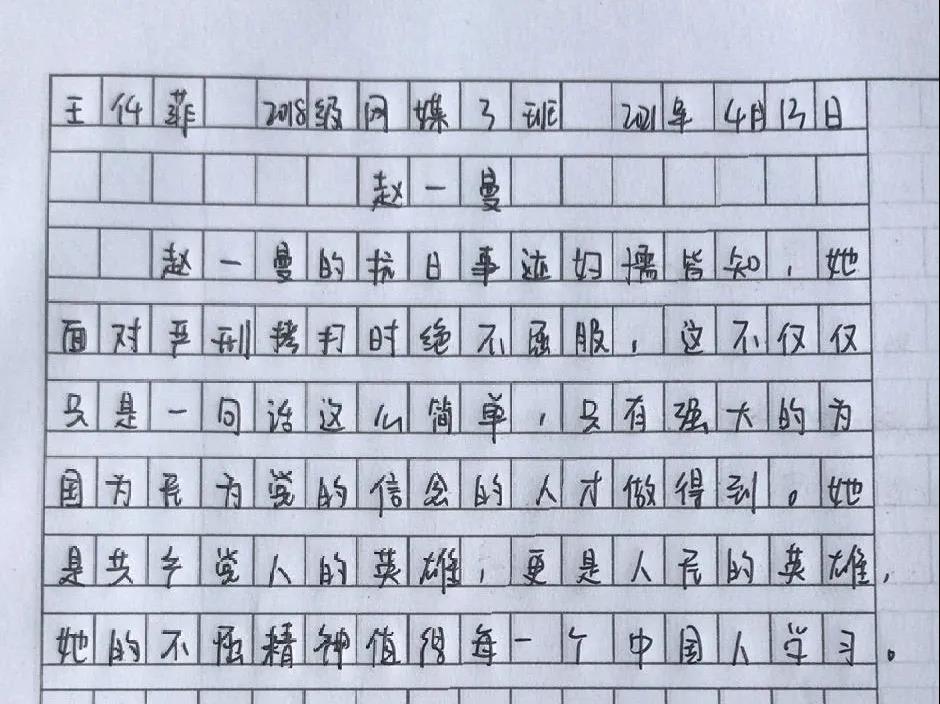 王 菲 2018级网媒3班 2021年4月13日
赵一曼
赵一曼的抗日事迹妇孺皆知，她
面对严刑拷打时绝不屈服，这不仅仅
只是一句话这么简单，只有强大的为
国为民为党的信念的人才做得到。她
是共产党人的英雄，更是人民的英雄，
她的不屈精神值得每一个中国人学习。